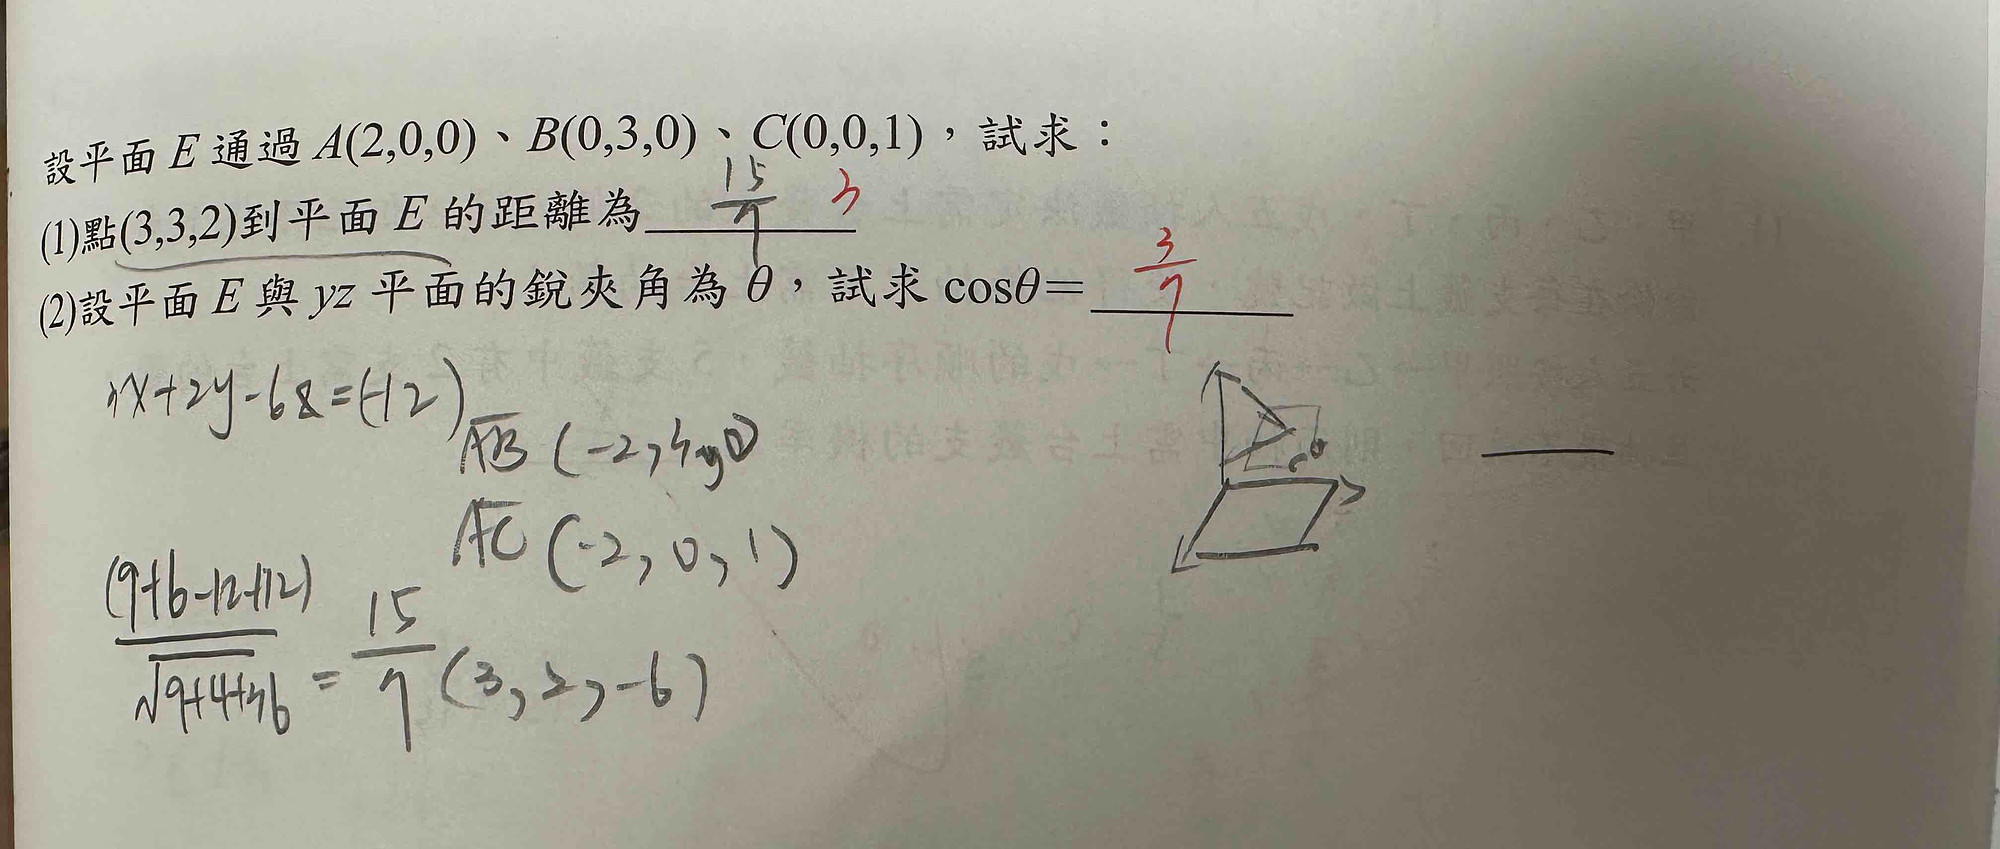 設平面 E 通過 A(2,0,0)、B(0,3,0)、C(0,0,1),試求:
(1)點(3,3,2)到平面 E 的距離為 15/7 3
(2)設平面 E 與 yz 平面的銳夾角為 θ,試求 cosθ= 3/7
3x+2y-6z=(-12)
AB (-2,3,0)
AC (-2,0,1)
(9+6-12+12)/√9+4+36 = 15/7
(3,2,-6)